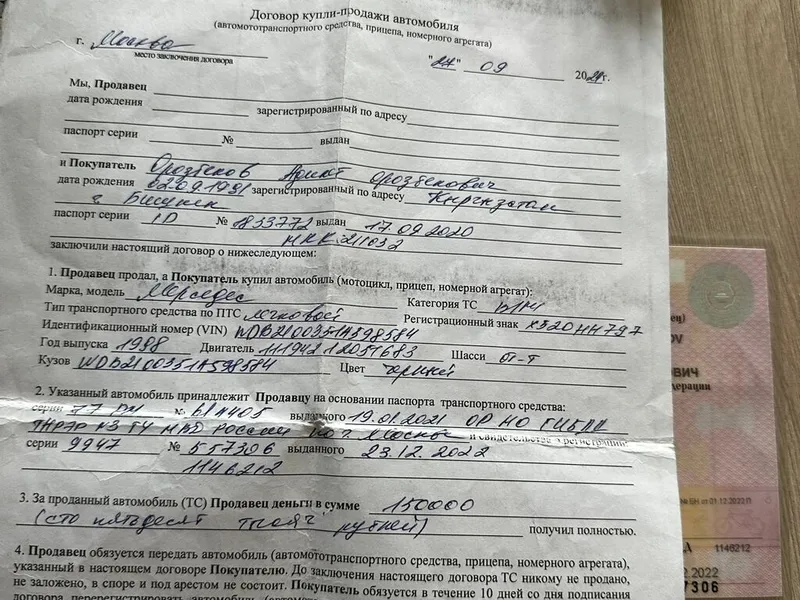 Договор купли-продажи автомобиля
(автомототранспортного средства, прицепа, номерного агрегата)
г. Москва
место заключения договора
"27" 09 2024 г.
Мы, Продавец
дата рождения зарегистрированный по адресу
паспорт серии № выдан
и Покупатель Орозбеков Адилет Орозбекович
дата рождения 02.09.1991 зарегистрированный по адресу Кыргызстан
г Бишкек
паспорт серии ID № 1833772 выдан 17.09.2020
МКК 211032
заключили настоящий договор о нижеследующем:
1. Продавец продал, а Покупатель купил автомобиль (мотоцикл, прицеп, номерной агрегат):
Марка, модель Мерседес Категория ТС В/М1
Тип транспортного средства по ПТС легковой Регистрационный знак Х320НН797
Идентификационный номер (VIN) WDB2100351A598584
Год выпуска 1998 Двигатель 11194212051683 Шасси от-т
Кузов WDB2100351A598584 Цвет синий
2. Указанный автомобиль принадлежит Продавцу на основании паспорта транспортного средства:
серии 77 № выданного 19.01.2021 ГИБДД
ТНРЭР №3 ГУ МВД России по г. Москве и свидетельства о регистрации:
серии 9947 № 557306 выданного 23.12.2022
1146212
3. За проданный автомобиль (ТС) Продавец деньги в сумме 150000
(сто пятьдесят тысяч рублей) получил полностью.
4. Продавец обязуется передать автомобиль (автомототранспортного средства, прицепа, номерного агрегата),
указанный в настоящем договоре Покупателю. До заключения настоящего договора ТС никому не продано,
не заложено, в споре и под арестом не состоит. Покупатель обязуется в течение 10 дней со дня подписания
договора перерегистрировать автомобиль
ец)
OV
ОВИЧ
дерации
№ БН от 01.12.2022 П
1146212
2.2022
7306